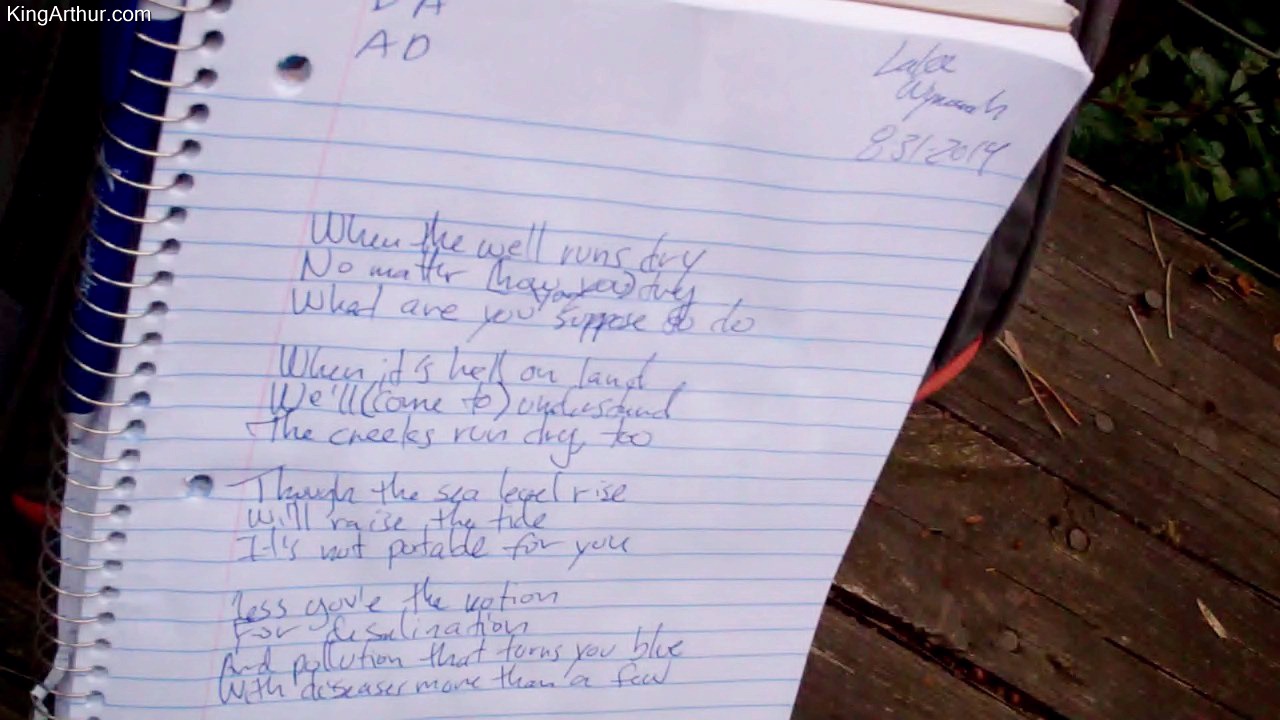 KingArthur.com
DA
AD
8-31-2014
When the well runs dry
No matter (how you) try
What are you suppose to do
When it's hell on land
We'll (come to) understand
The creeks run dry, too
Though the sea level rise
Will raise the tide
It's not potable for you
Less you've the notion
For desalination
And pollution that turns you blue
With diseases more than a few